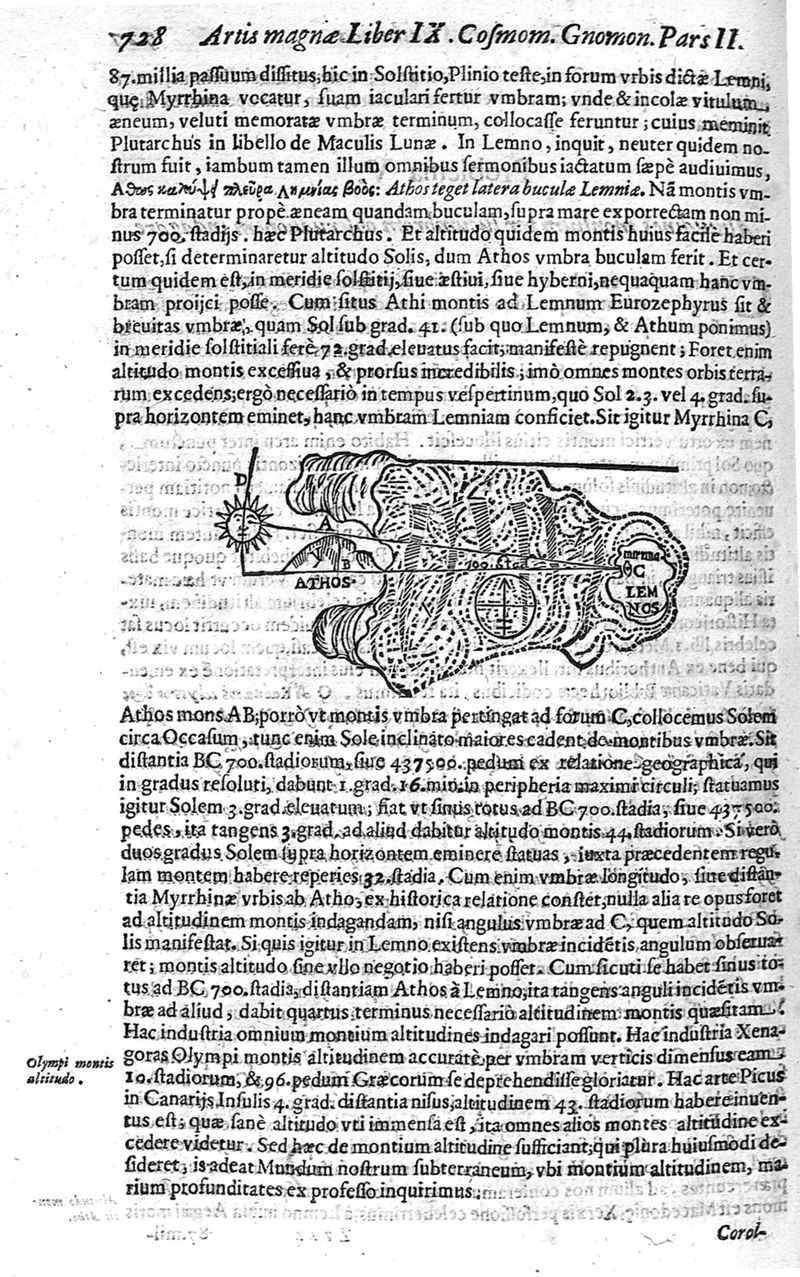 728 Artis magnæ Liber IX. Coſmom. Gnomon. Pars II.
87. millia paſſuum diſſitus; hic in Solſtitio, Plinio teſte, in forum vrbis dictæ Lemni,
quę Myrrhina vocatur, ſuam iaculari fertur vmbram; vnde & incolæ vitulum
æneum, veluti memoratæ vmbræ terminum, collocaſſe feruntur; cuius meminit
Plutarchus in libello de Maculis Lunæ. In Lemno, inquit, neuter quidem no-
ſtrum fuit, iambum tamen illum omnibus ſermonibus iactatum ſæpè audiuimus,
πλευρα Λημνίας βοός: Athos teget latera buculæ Lemniæ. Nã montis vm-
bra terminatur propè æneam quandam buculam, ſupra mare exporrectam non mi-
nus 700. ſtadijs. hæc Plutarchus. Et altitudo quidem montis huius facilè haberi
poſſet, ſi determinaretur altitudo Solis, dum Athos vmbra buculam ferit. Et cer-
tum quidem eſt, in meridie ſolſtitij, ſiue æſtiui, ſiue hyberni, nequaquam hanc vm-
bram proijci poſſe. Cum ſitus Athi montis ad Lemnum Eurozephyrus ſit &
breuitas vmbræ, quam Sol ſub grad. 41. (ſub quo Lemnum, & Athum ponimus)
in meridie ſolſtitiali ferè 72. grad. eleuatus facit, manifeſtè repugnent; Foret enim
altitudo montis exceſſiua, & prorſus incredibilis; imò omnes montes orbis terra-
rum excedens; ergò neceſſariò in tempus veſpertinum, quo Sol 2. 3. vel 4. grad. ſu-
pra horizontem eminet, hanc vmbram Lemniam conficiet. Sit igitur Myrrhina C,
D
A
B
ATHOS
700. ſtad
C
LEM
NOS
Athos mons AB; porrò vt montis vmbra pertingat ad forum C, collocemus Solem
circa Occaſum, tunc enim Sole inclinato maiores cadent de montibus vmbræ. Sit
diſtantia BC 700. ſtadiorum, ſiue 437500. pedum ex relatione geographica, qui
in gradus reſoluti, dabunt 1. grad. 16. min. in peripheria maximi circuli; ſtatuamus
igitur Solem 3. grad. eleuatum; fiat vt ſinus totus ad BC 700. ſtadia, ſiue 437500.
pedes, ita tangens 3. grad. ad aliud dabitur altitudo montis 44. ſtadiorum. Si verò
duos gradus Solem ſupra horizontem eminere ſtatuas, iuxta præcedentem regu-
lam montem habere reperies 32. ſtadia. Cum enim vmbræ longitudo, ſiue diſtan-
tia Myrrhinæ vrbis ab Atho, ex hiſtorica relatione conſtet, nulla alia re opus foret
ad altitudinem montis indagandam, niſi angulus vmbræ ad C, quem altitudo So-
lis manifeſtat. Si quis igitur in Lemno exiſtens vmbræ incidẽtis angulum obſerua-
ret; montis altitudo ſine vllo negotio haberi poſſet. Cum ſicuti ſe habet ſinus to-
tus ad BC 700. ſtadia, diſtantiam Athos à Lemno; ita tangens anguli incidẽtis vm-
bræ ad aliud, dabit quartus terminus neceſſariò altitudinem montis quæſitam.
Hac induſtria omnium montium altitudines indagari poſſunt. Hac induſtria Xena-
goras Olympi montis altitudinem accuratè per vmbram verticis dimenſus eam
10. ſtadiorum, & 96. pedum Græcorum ſe deprehendiſſe gloriatur. Hac arte Picus
in Canarijs Inſulis 4. grad. diſtantia niſus, altitudinem 43. ſtadiorum habere inuen-
tus eſt; quæ ſanè altitudo vti immenſa eſt, ita omnes alios montes altitudine ex-
cedere videtur. Sed hæc de montium altitudine ſufficiant; qui plura huiuſmodi de-
ſideret, is adeat Mundum noſtrum ſubterraneum, vbi montium altitudinem, ma-
rium profunditates ex profeſſo inquirimus.
Olympi montis
altitudo.
Corol-